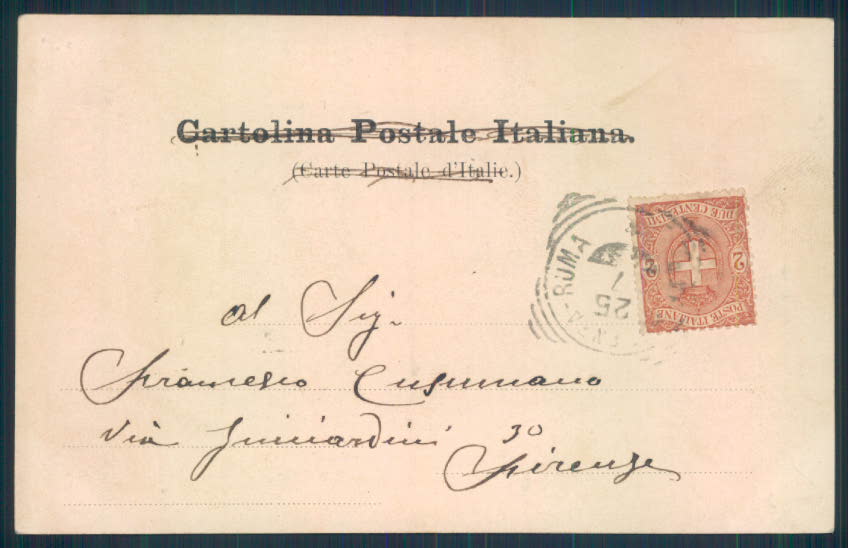 Cartolina Postale Italiana.
(Carte Postale d'Italie.)
POSTE ITALIANE
2 2
DUE CENTESIMI
ROMA
25
7
al Sig.
Francesco Cusumano
Via Guicciardini 30
Firenze